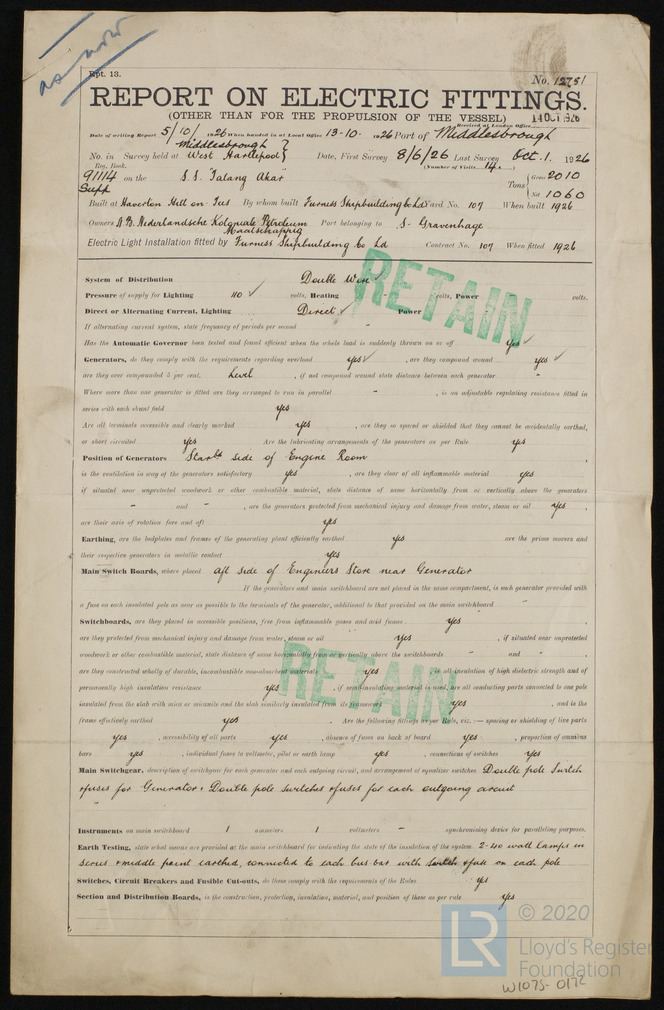 as now
Rpt. 13.
No. 12751
REPORT ON ELECTRIC FITTINGS.
(OTHER THAN FOR THE PROPULSION OF THE VESSEL)
14 OCT 1926
Received at London Office
Date of writing Report 5/10/1926 When handed in at Local Office 13-10-1926 Port of Middlesbrough
No. in Survey held at Middlesbrough } West Hartlepool Date, First Survey 8/6/26 Last Survey Oct. 1. 1926
Reg. Book. (Number of Visits 14)
91114 on the S.S. Talang Akar Tons { Gross 2010
Supp Net 1060
Built at Haverton Hill on Tees By whom built Furness Shipbuilding Co Ld Yard No. 107 When built 1926
Owners N.V. Nederlandsche Koloniale Petroleum Maatschappij Port belonging to S-Gravenhage
Electric Light Installation fitted by Furness Shipbuilding Co Ld Contract No. 107 When fitted 1926
System of Distribution Double Wire
Pressure of supply for Lighting 110 volts, Heating volts, Power volts.
Direct or Alternating Current, Lighting Direct Power
If alternating current system, state frequency of periods per second -
Has the Automatic Governor been tested and found efficient when the whole load is suddenly thrown on or off yes
Generators, do they comply with the requirements regarding overload yes, are they compound wound yes
are they over compounded 5 per cent. Level, if not compound wound state distance between each generator -
Where more than one generator is fitted are they arranged to run in parallel -, is an adjustable regulating resistance fitted in
series with each shunt field yes
Are all terminals accessible and clearly marked yes, are they so spaced or shielded that they cannot be accidentally earthed,
or short circuited yes Are the lubricating arrangements of the generators as per Rule yes
Position of Generators Starbd side of Engine Room
is the ventilation in way of the generators satisfactory yes, are they clear of all inflammable material yes
if situated near unprotected woodwork or other combustible material, state distance of same horizontally from or vertically above the generators
- and -, are the generators protected from mechanical injury and damage from water, steam or oil yes,
are their axis of rotation fore and aft yes
Earthing, are the bedplates and frames of the generating plant efficiently earthed yes are the prime movers and
their respective generators in metallic contact yes
Main Switch Boards, where placed Aft side of Engineers Store near Generator
If the generators and main switchboard are not placed in the same compartment, is each generator provided with
a fuse on each insulated pole as near as possible to the terminals of the generator, additional to that provided on the main switchboard
Switchboards, are they placed in accessible positions, free from inflammable gases and acid fumes yes,
are they protected from mechanical injury and damage from water, steam or oil yes, if situated near unprotected
woodwork or other combustible material, state distance of same horizontally from or vertically above the switchboards - and -,
are they constructed wholly of durable, incombustible non-absorbent materials yes, is all insulation of high dielectric strength and of
permanently high insulation resistance yes, if semi-insulating material is used, are all conducting parts connected to one pole
insulated from the slab with mica or micanite and the slab similarly insulated from its yes, and is the
frame effectively earthed yes. Are the following fittings as per Rule, viz. :— spacing or shielding of live parts
yes, accessibility of all parts yes, absence of fuses on back of board yes, proportion of omnibus
bars yes, individual fuses to voltmeter, pilot or earth lamp yes, connections of switches yes
Main Switchgear, description of switchgear for each generator and each outgoing circuit, and arrangement of equalizer switches Double pole Switch
& fuses for Generator & Double pole switches & fuses for each outgoing circuit
Instruments on main switchboard 1 ammeters 1 voltmeters - synchronising device for paralleling purposes.
Earth Testing, state what means are provided at the main switchboard for indicating the state of the insulation of the system 2-40 watt Lamps in
series & middle point earthed, connected to each bus bar with switch & fuse on each pole
Switches, Circuit Breakers and Fusible Cut-outs, do these comply with the requirements of the Rules yes
Section and Distribution Boards, is the construction, protection, insulation, material, and position of these as per rule yes
RETAIN
RETAIN
LR
© 2020
Lloyd's Register
Foundation
W1075-0172